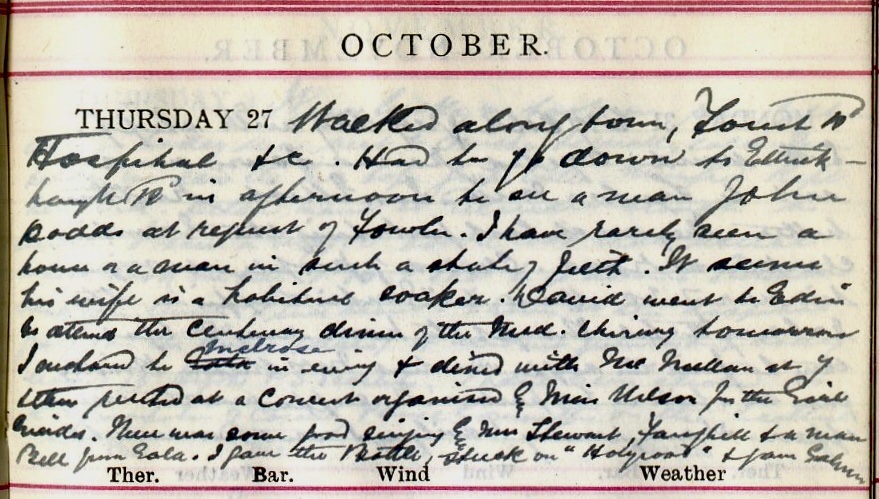 OCTOBER.
THURSDAY 27 Walked along town, Forest Rd
Hospital &c. Had to go down to Ettrick-
haugh Rd in afternoon to see a man John
Dodds at request of Fowler. I have rarely seen a
house or a man in such a state of filth. It seems
his wife is a habitual soaker. David went to Edin
to attend the centenary dinner of the Med. tomorrow
I motored to Melrose in evening & dined with Mc Millan at 7
then presided at a concert organised by Miss Wilson for the Girl
Guides. There was some good singing by Mrs Stewart, & a man
Bell from Gala. I gave the "Holyrood" &
Ther. Bar. Wind Weather